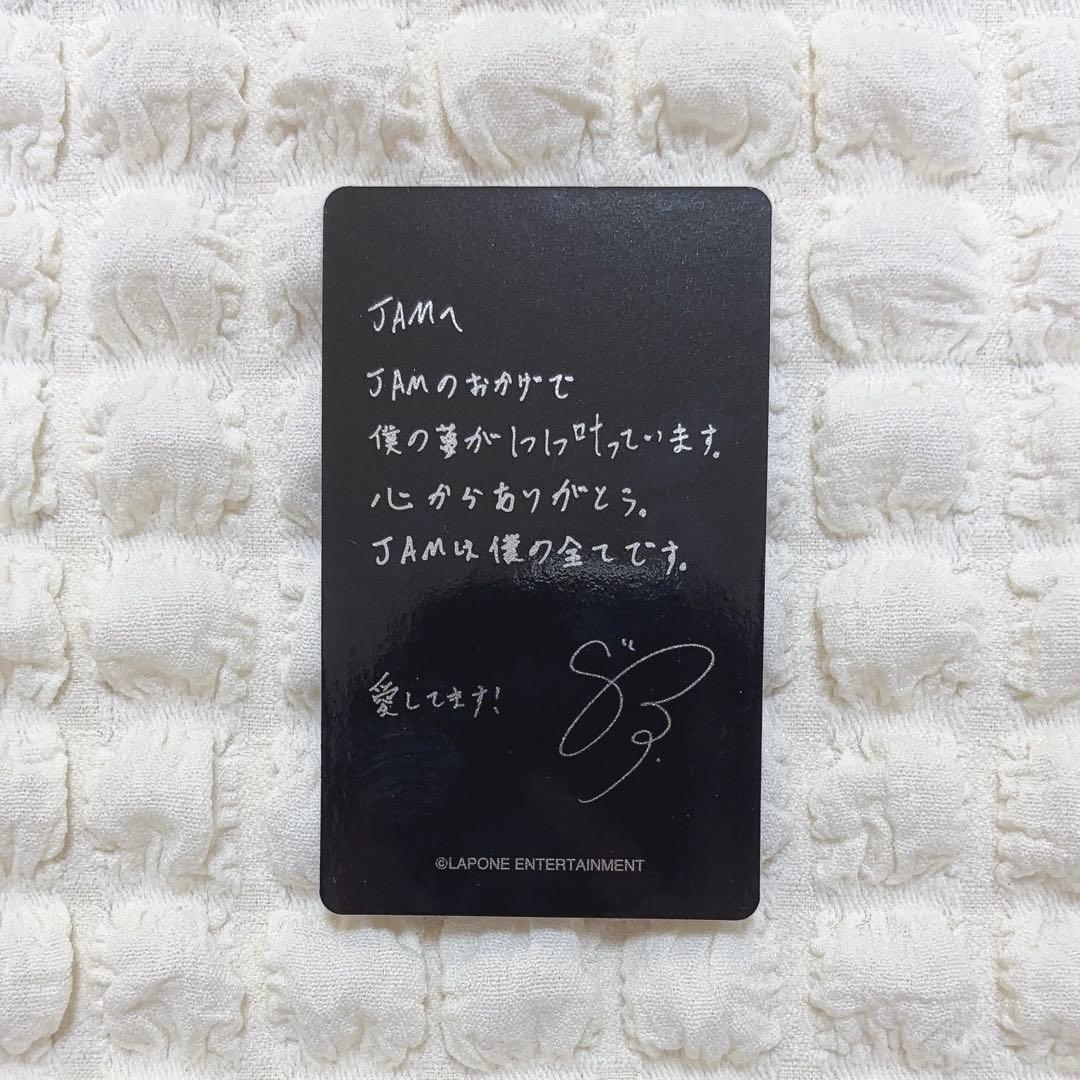 JAMへ
JAMのおかげで
僕の夢が1つ1つ叶っています。
心からありがとう。
JAMは僕の全てです。
愛してます!
©LAPONE ENTERTAINMENT